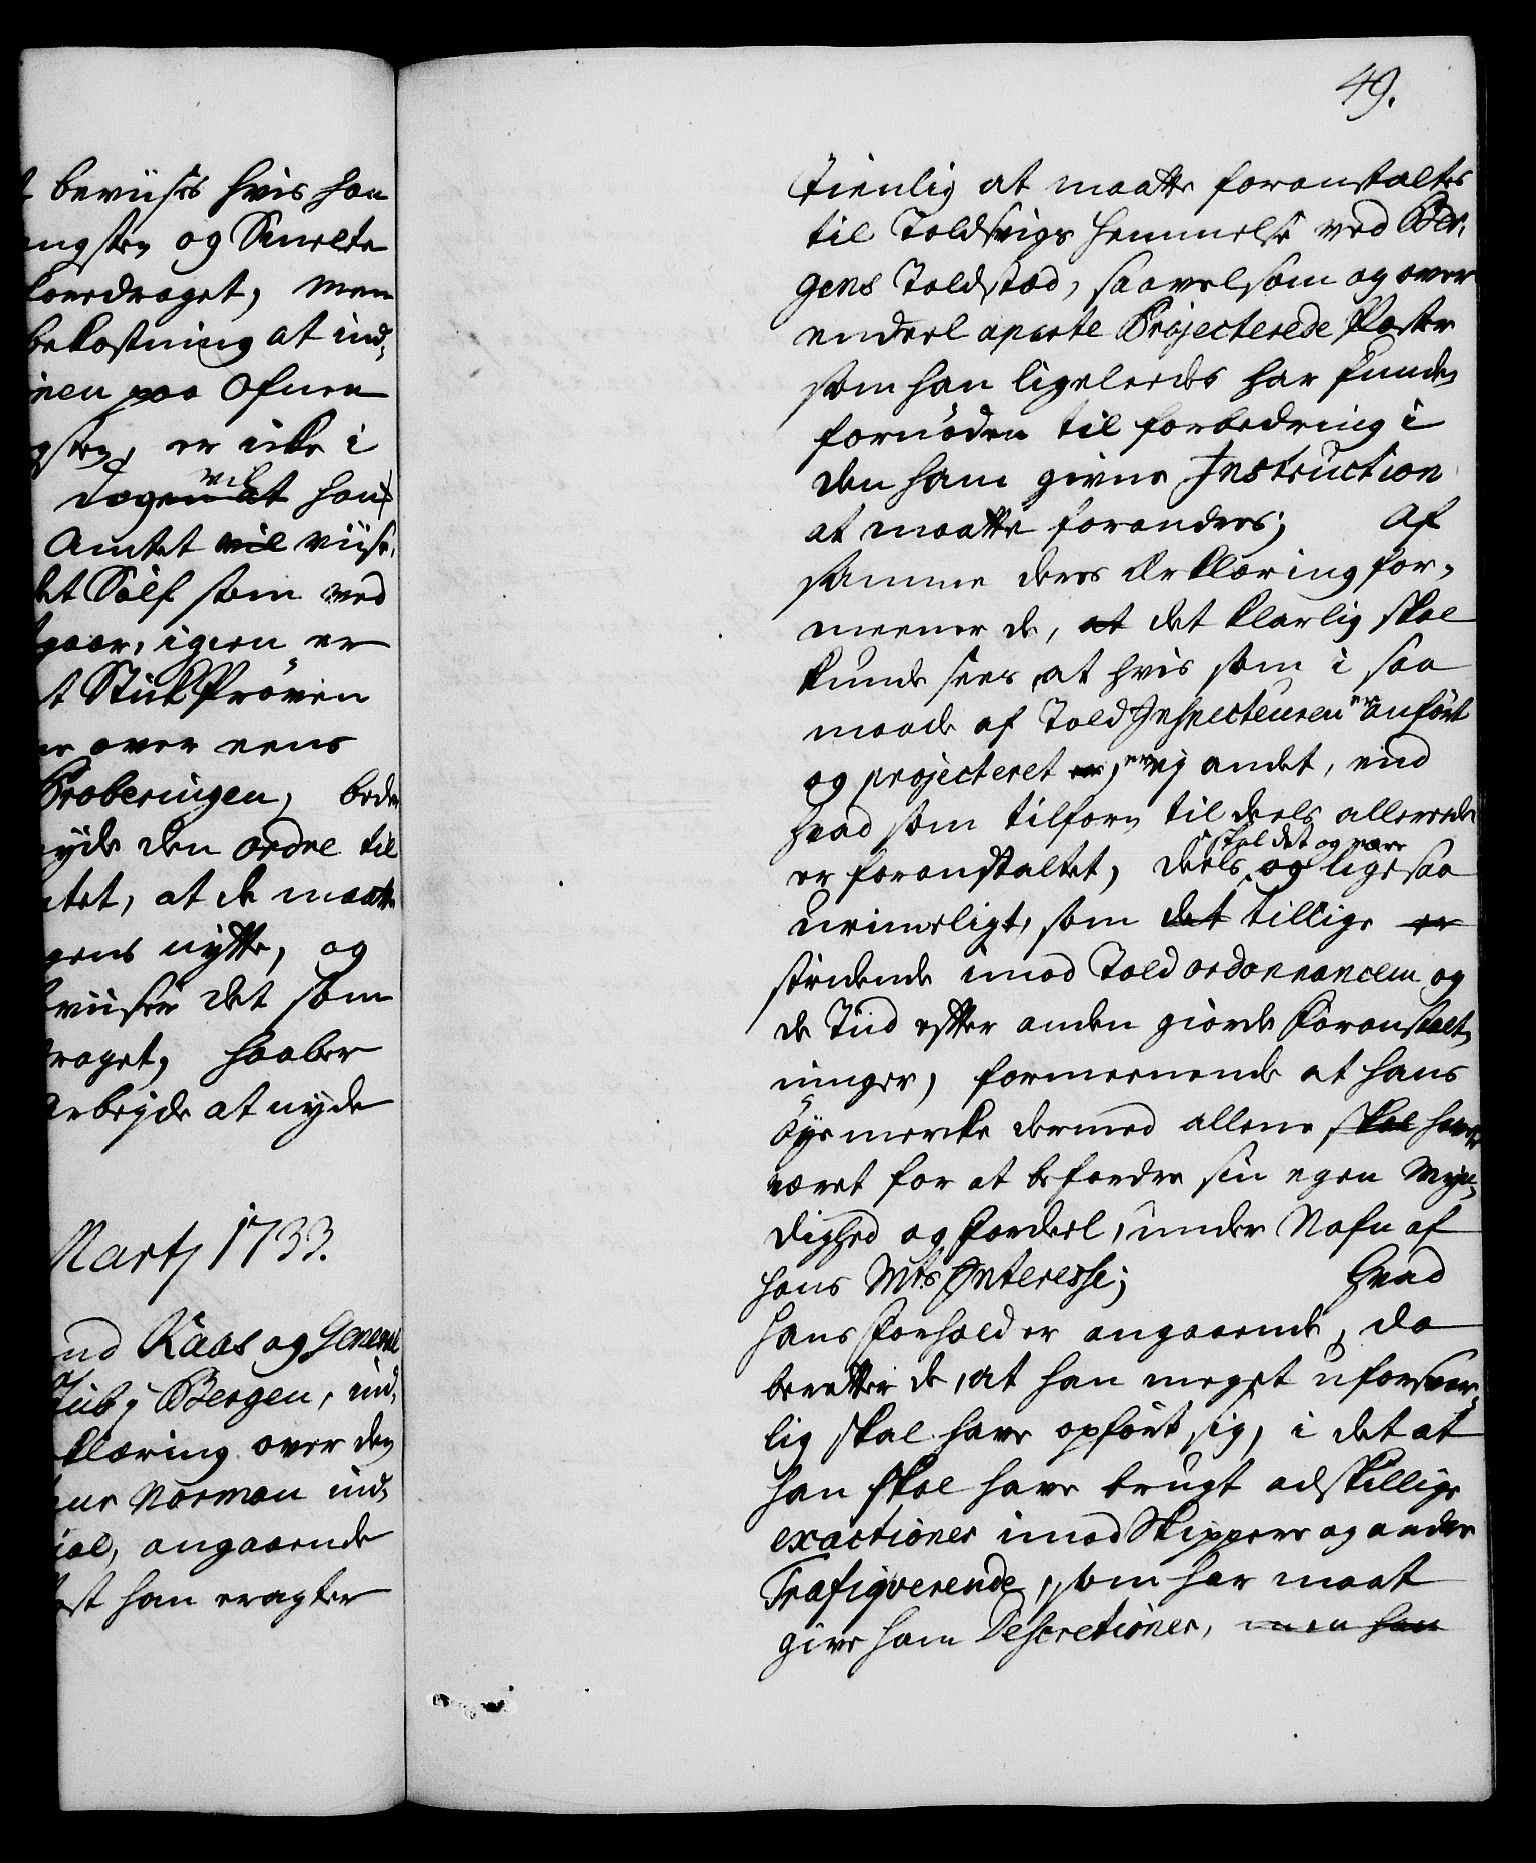 beviises hvis han
ngsten og Smelte
foredraget, men
bekostning at ind-
nen paa Ofnen
gsten, er icke i
dagen at han
vil
Amtet vil viise,
et Sølf som ved
gaar, igien er
t Stuk Prøven
er over eens
Proberingen, bede
nyde den ordre til
ntet, at de maatte
gens nytte, og
beviise det som
draget, haaber
Arbeyde at nyde
Martj 1733.
nd Kaas og General
Juby i Bergen, ind-
klæring over den
Norman ind-
ial, angaaende
st han eragter
49.
tienlig at maatte foranstaltes
til Toldsvigs hemmelse ved Ber-
gens Toldstad, saavelsom og over
endeel aparte Projecterede Poster
som han ligeleedes har funden
fornøden til forbedring i
den ham givne Instruction
at maatte forandres; Af
samme deres Erklæring for-
meener de, at det klarlig skal
kunde sees, at hvis som i saa
maade af Told Inspecteuren er anført
og projecteret er, er ej andet, end
hvad som tilforn til deels allerede
skal det og være
er foranstaltet, deels og ligesaa
urimeligt, som det tillige er
stridende imod Told ordonnancen og
de Tiid efter anden giorde Foranstalt-
ninger, formeenende at hans
Øyemerke dermed allene skal have
været for at befordre sin egen Myn-
dighed og Fordeel, under Nafn af
hans Mts Interesse; Hvad
hans Forhold er angaaende, da
beretter de, at han meget uforsvar-
lig skal have opført sig, i det at
han skal have brugt adskillige
exactioner imod Skippere og andre
Trafiqverende, som har maat
give ham Descretioner, men han